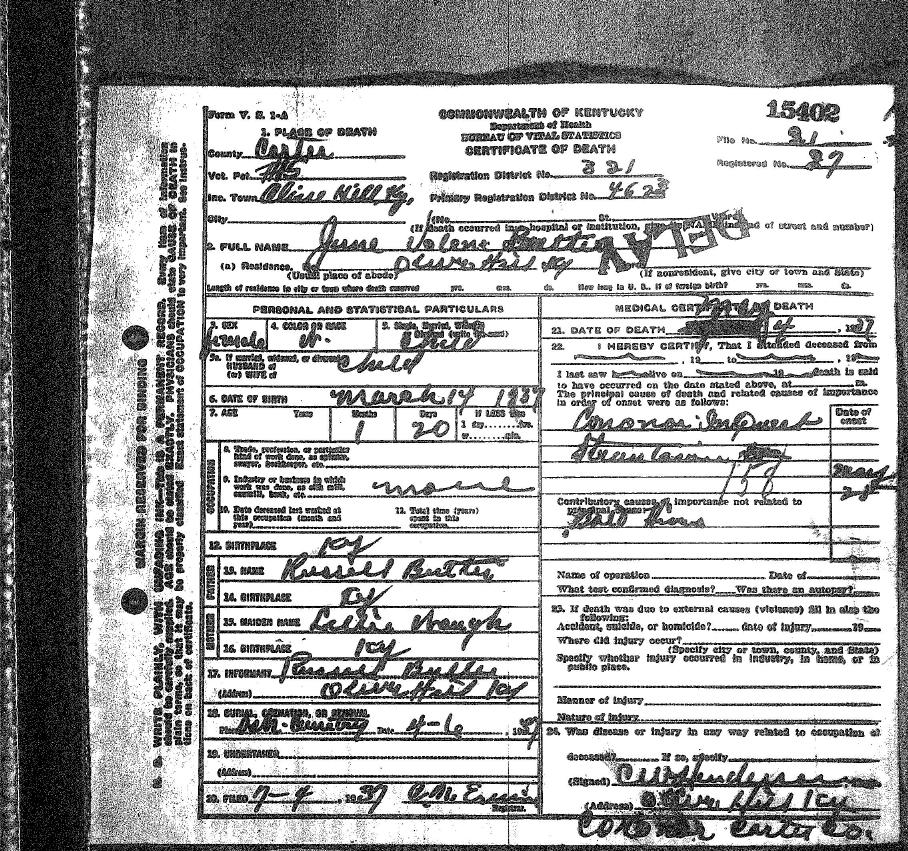 Form V. S. 1-A
COMMONWEALTH OF KENTUCKY
Department of Health
BUREAU OF VITAL STATISTICS
CERTIFICATE OF DEATH
15402
File No. 21
Registered No. 27
1. PLACE OF DEATH
County Carter
Vot. Pct.
Inc. Town Olive Hill Ky.
City
Registration District No. 321
Primary Registration District No. 4623
(No. St. Ward)
(If death occurred in a hospital or institution, give its NAME instead of street and number)
DELAY
2. FULL NAME June
(a) Residence. Olive Hill Ky
(Usual place of abode) (If nonresident, give city or town and State)
Length of residence in city or town where death occurred yrs. mos. ds. How long in U. S., if of foreign birth? yrs. mos. ds.
PERSONAL AND STATISTICAL PARTICULARS
3. SEX female
4. COLOR OR RACE W.
5. Single, Married, Widowed or Divorced (write the word) Child
5a. If married, widowed, or divorced
HUSBAND of
(or) WIFE of child
6. DATE OF BIRTH March 14 1937
7. AGE Years Months 1 Days 20 If LESS than 1 day hrs. or min.
OCCUPATION
8. Trade, profession, or particular kind of work done, as spinner, sawyer, bookkeeper, etc.
9. Industry or business in which work was done, as silk mill, sawmill, bank, etc. none
10. Date deceased last worked at this occupation (month and year)
11. Total time (years) spent in this occupation
12. BIRTHPLACE Ky
FATHER
13. NAME Russell Butler
14. BIRTHPLACE Ky
MOTHER
15. MAIDEN NAME Waugh
16. BIRTHPLACE Ky
17. INFORMANT Russell Butler
(Address) Olive Hill Ky
18. BURIAL, CREMATION, OR REMOVAL
Place Date 4-6, 1937
19. UNDERTAKER
(Address)
20. FILED 7-4, 1937 C. M.
Registrar.
MEDICAL CERTIFICATE OF DEATH
21. DATE OF DEATH May 4, 1937
22. I HEREBY CERTIFY, That I attended deceased from
, 19 to , 19
I last saw h alive on , 19 death is said
to have occurred on the date stated above, at m.
The principal cause of death and related causes of importance
in order of onset were as follows:
Date of onset
Coronor Inquest
158
Contributory causes of importance not related to
principal cause:
Name of operation Date of
What test confirmed diagnosis? Was there an autopsy?
23. If death was due to external causes (violence) fill in also the
following:
Accident, suicide, or homicide? date of injury 19
Where did injury occur?
(Specify city or town, county, and State)
Specify whether injury occurred in industry, in home, or in
public place.
Manner of injury
Nature of injury
24. Was disease or injury in any way related to occupation of
deceased? If so, specify
(Signed) Henderson
(Address) Olive Hill Ky
Coroner Carter Co.
MARGIN RESERVED FOR BINDING
N. B. WRITE PLAINLY, WITH UNFADING INK—THIS IS A PERMANENT RECORD. Every item of information
should be carefully supplied. AGE should be stated EXACTLY. PHYSICIANS should state CAUSE OF DEATH in
plain terms, so that it may be properly classified. Exact statement of OCCUPATION is very important. See instruc-
tions on back of certificate.